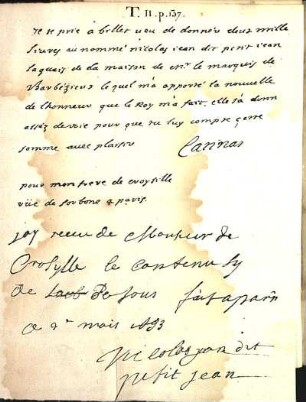 T. II. p. 137.
Je te prie à belle veu de donner deux mille
livres au nommé nicolas jean dit petit jean
laquais de la maison de mr. le marquis de
Barbezieux lequel m'a apporté la nouvelle
de l'honneur que le Roy m'a fait, elle m'a donné
assez de joie pour que tu luy compte cette
somme avec plaisir
Catinat
pour mon frere de croysille
rüe de sorbone a paris
jay receu de Monsieur de
Croisylle le contenu cy
de sous fait a paris
ce 2e mars 1693
nicolas jan dit
petit jean